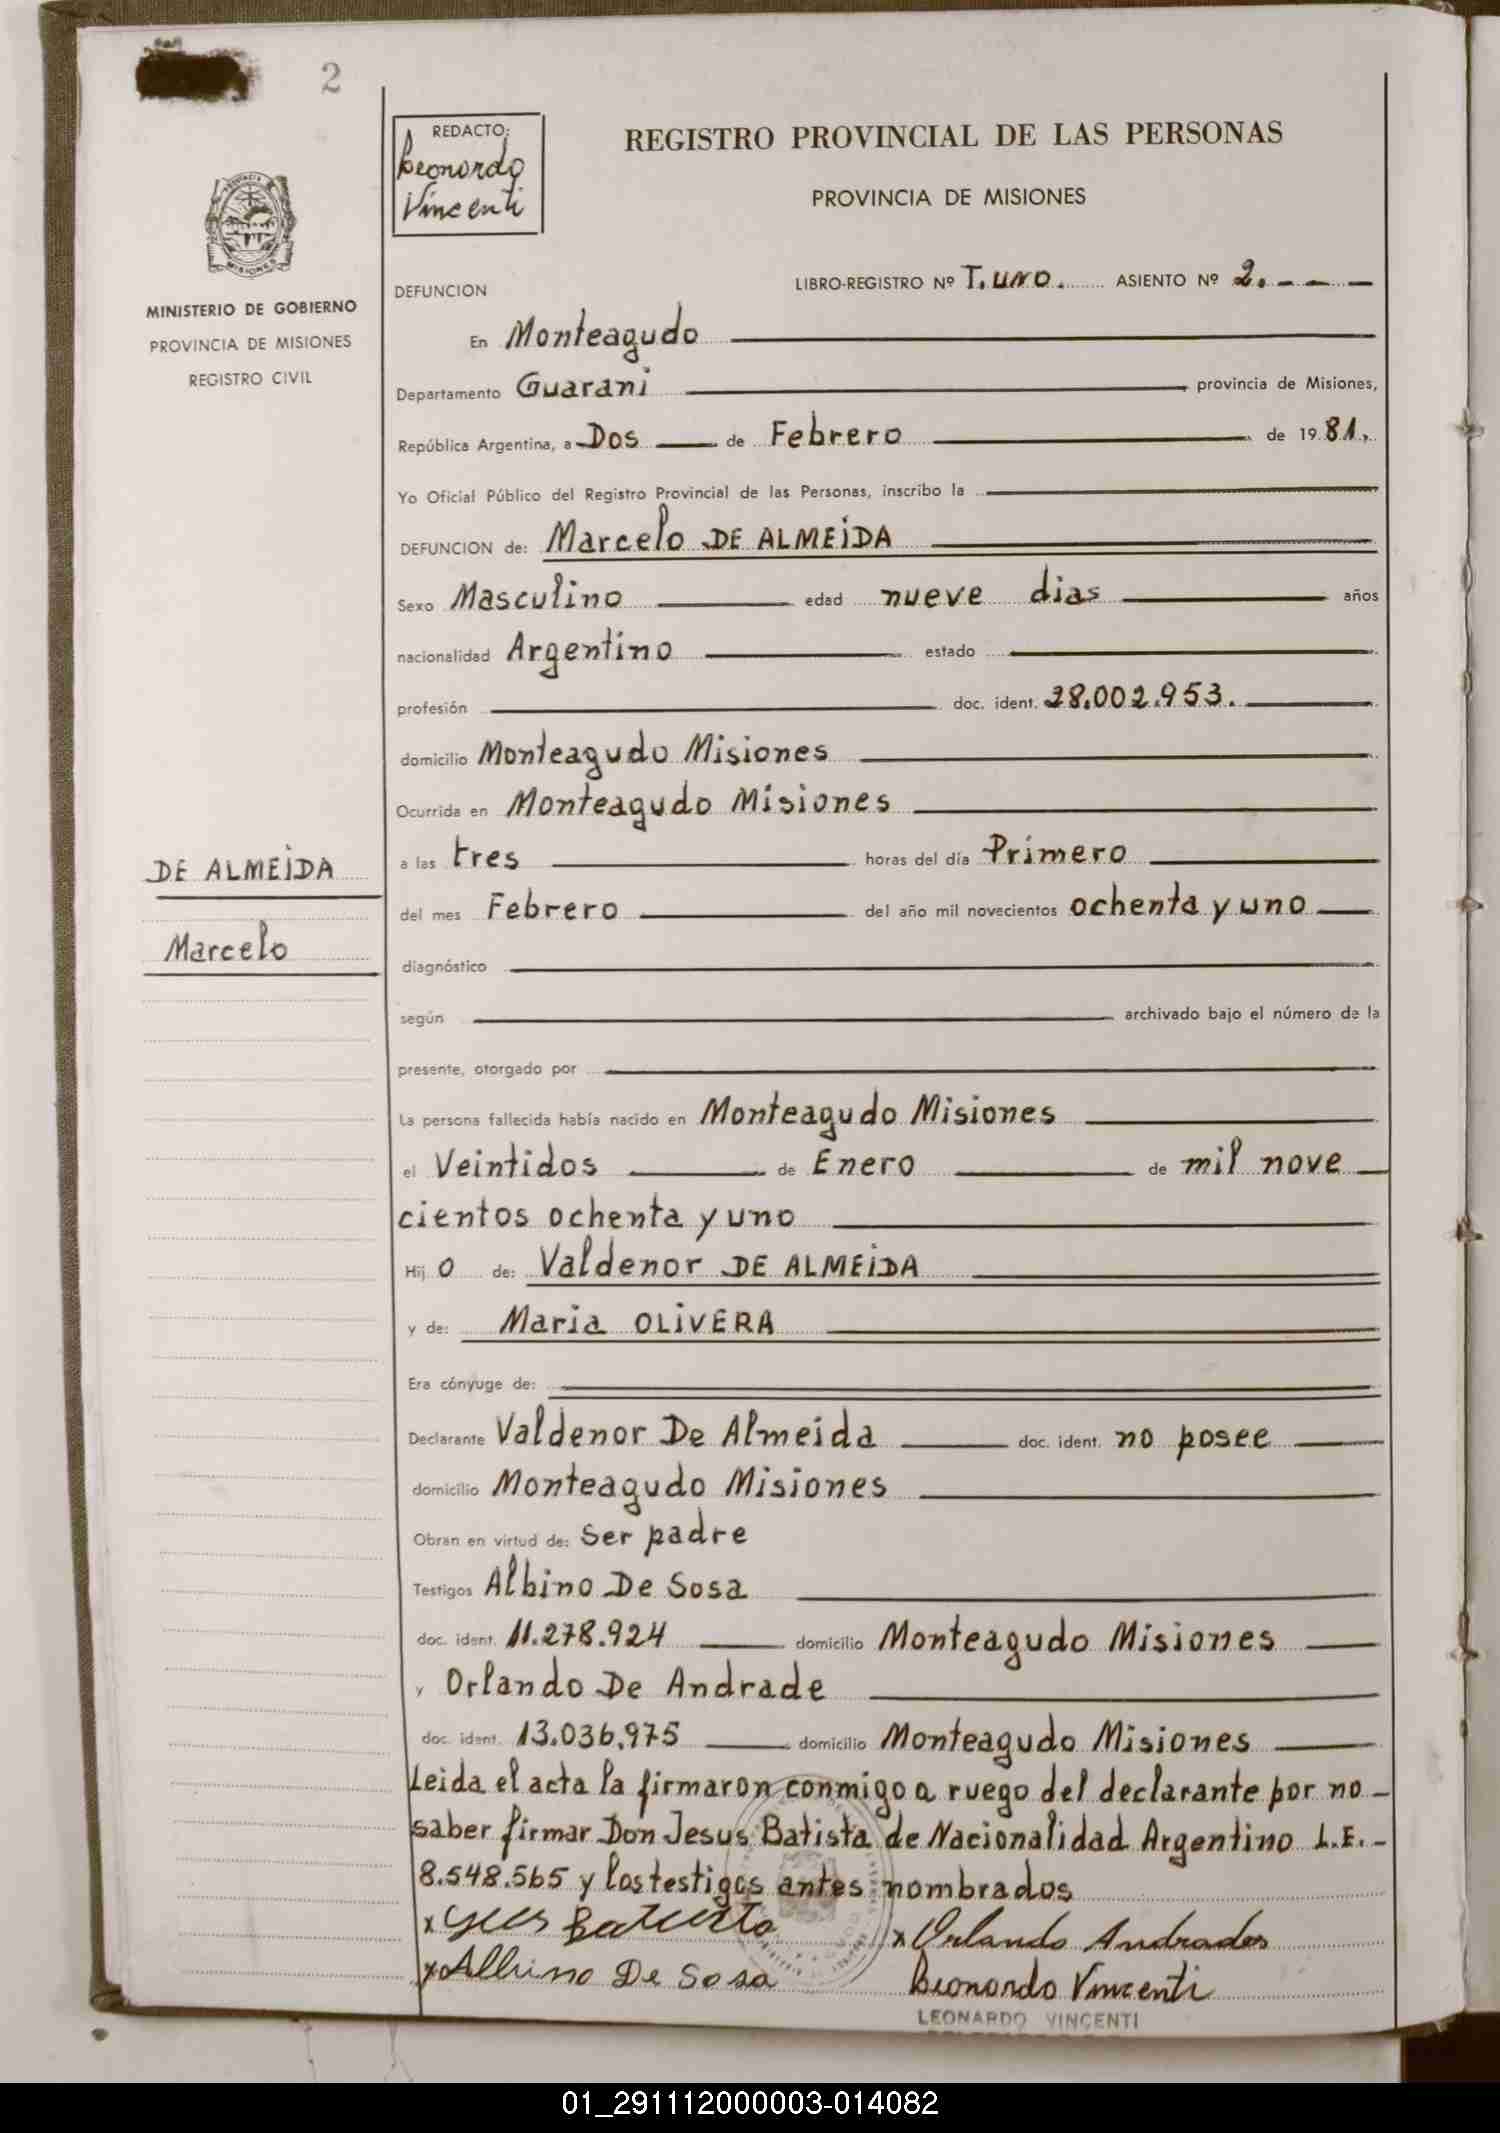 2
REDACTO:
Leonardo
Vincenti
REGISTRO PROVINCIAL DE LAS PERSONAS
PROVINCIA DE MISIONES
MISIONES
MINISTERIO DE GOBIERNO
PROVINCIA DE MISIONES
REGISTRO CIVIL
DEFUNCION LIBRO-REGISTRO Nº T. uno. ASIENTO Nº 2.
En Monteagudo
Departamento Guarani provincia de Misiones,
República Argentina, a Dos de Febrero de 1981,
Yo Oficial Público del Registro Provincial de las Personas, inscribo la
DEFUNCION de: Marcelo DE ALMEiDA
Sexo Masculino edad nueve dias años
nacionalidad Argentino estado
profesión doc. ident. 28.002.953.
domicilio Monteagudo Misiones
Ocurrida en Monteagudo Misiones
a las tres horas del día Primero
del mes Febrero del año mil novecientos ochenta y uno
DE ALMEiDA
Marcelo
diagnóstico
según archivado bajo el número de la
presente, otorgado por
La persona fallecida había nacido en Monteagudo Misiones
el Veintidos de Enero de mil nove
cientos ochenta y uno
Hij o de: Valdenor DE ALMEiDA
y de: Maria OLiVERA
Era cónyuge de:
Declarante Valdenor De Almeida doc. ident. no posee
domicilio Monteagudo Misiones
Obran en virtud de: Ser padre
Testigos Albino De Sosa
doc. ident. 11.278.924 domicilio Monteagudo Misiones
y Orlando De Andrade
doc. ident. 13.036.975 domicilio Monteagudo Misiones
Leida el acta la firmaron conmigo a ruego del declarante por no
saber firmar Don Jesus Batista de Nacionalidad Argentino L.E.-
8.548.565 y los testigos antes nombrados
x Batista x Orlando Andrades
x Albino De Sosa Leonardo Vincenti
LEONARDO VINCENTI
01_291112000003-014082